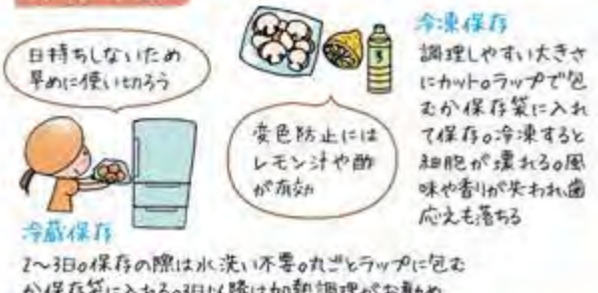 日持ちしないため
早めに使い切ろう
変色防止には
レモン汁や酢
が有効
冷凍保存
調理しやすい大きさ
にカット。ラップで包
むか保存袋に入れ
て保存。冷凍すると
細胞が壊れる。風
味や香りが失われ歯
応えも落ちる
冷蔵保存
2〜3日。保存の際は水洗い不要。丸ごとラップに包む
か保存袋に入れる。3日以降は加熱調理がお勧め